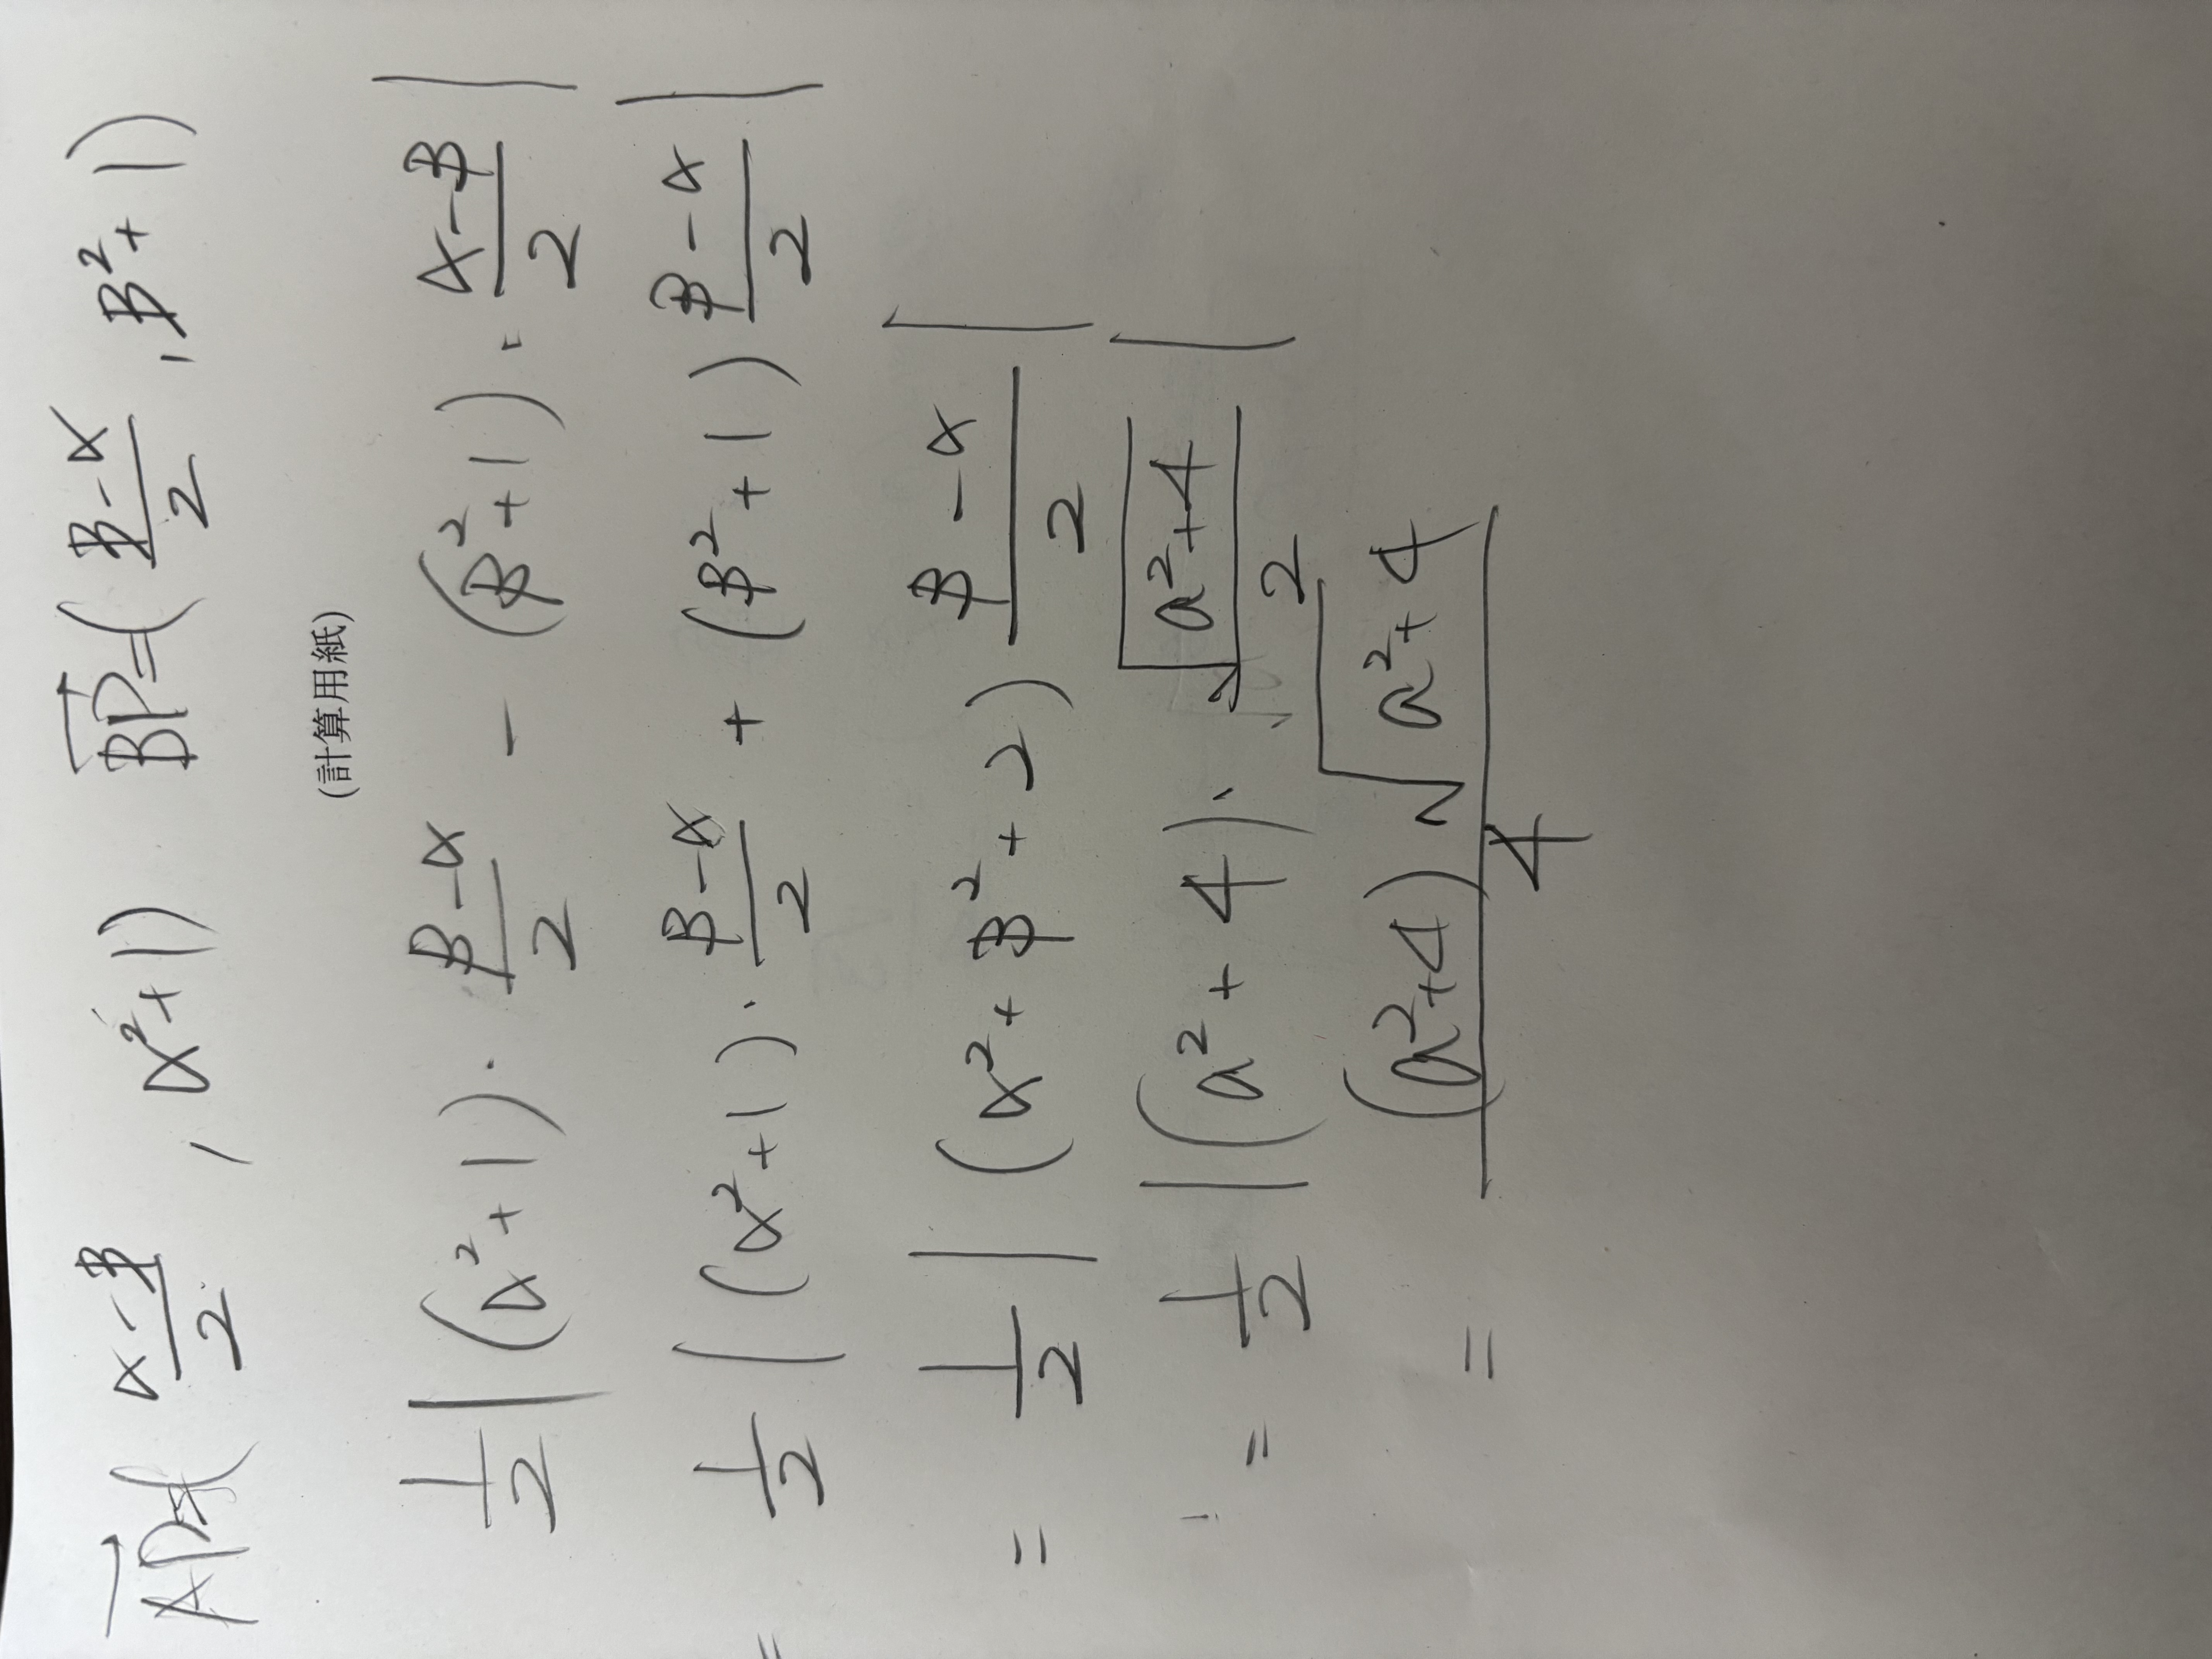 AP=( α-β/2 , α²+1) BP=( β-α/2 , β²+1)
(計算用紙)
1/2 |(α²+1)· β-α/2 - (β²+1)· α-β/2|
= 1/2 |(α²+1)· β-α/2 + (β²+1) β-α/2|
= 1/2 |(α²+β²+2) β-α/2|
= 1/2 |(a²+4)· √a²+4/2|
= (a²+4)√a²+4/4